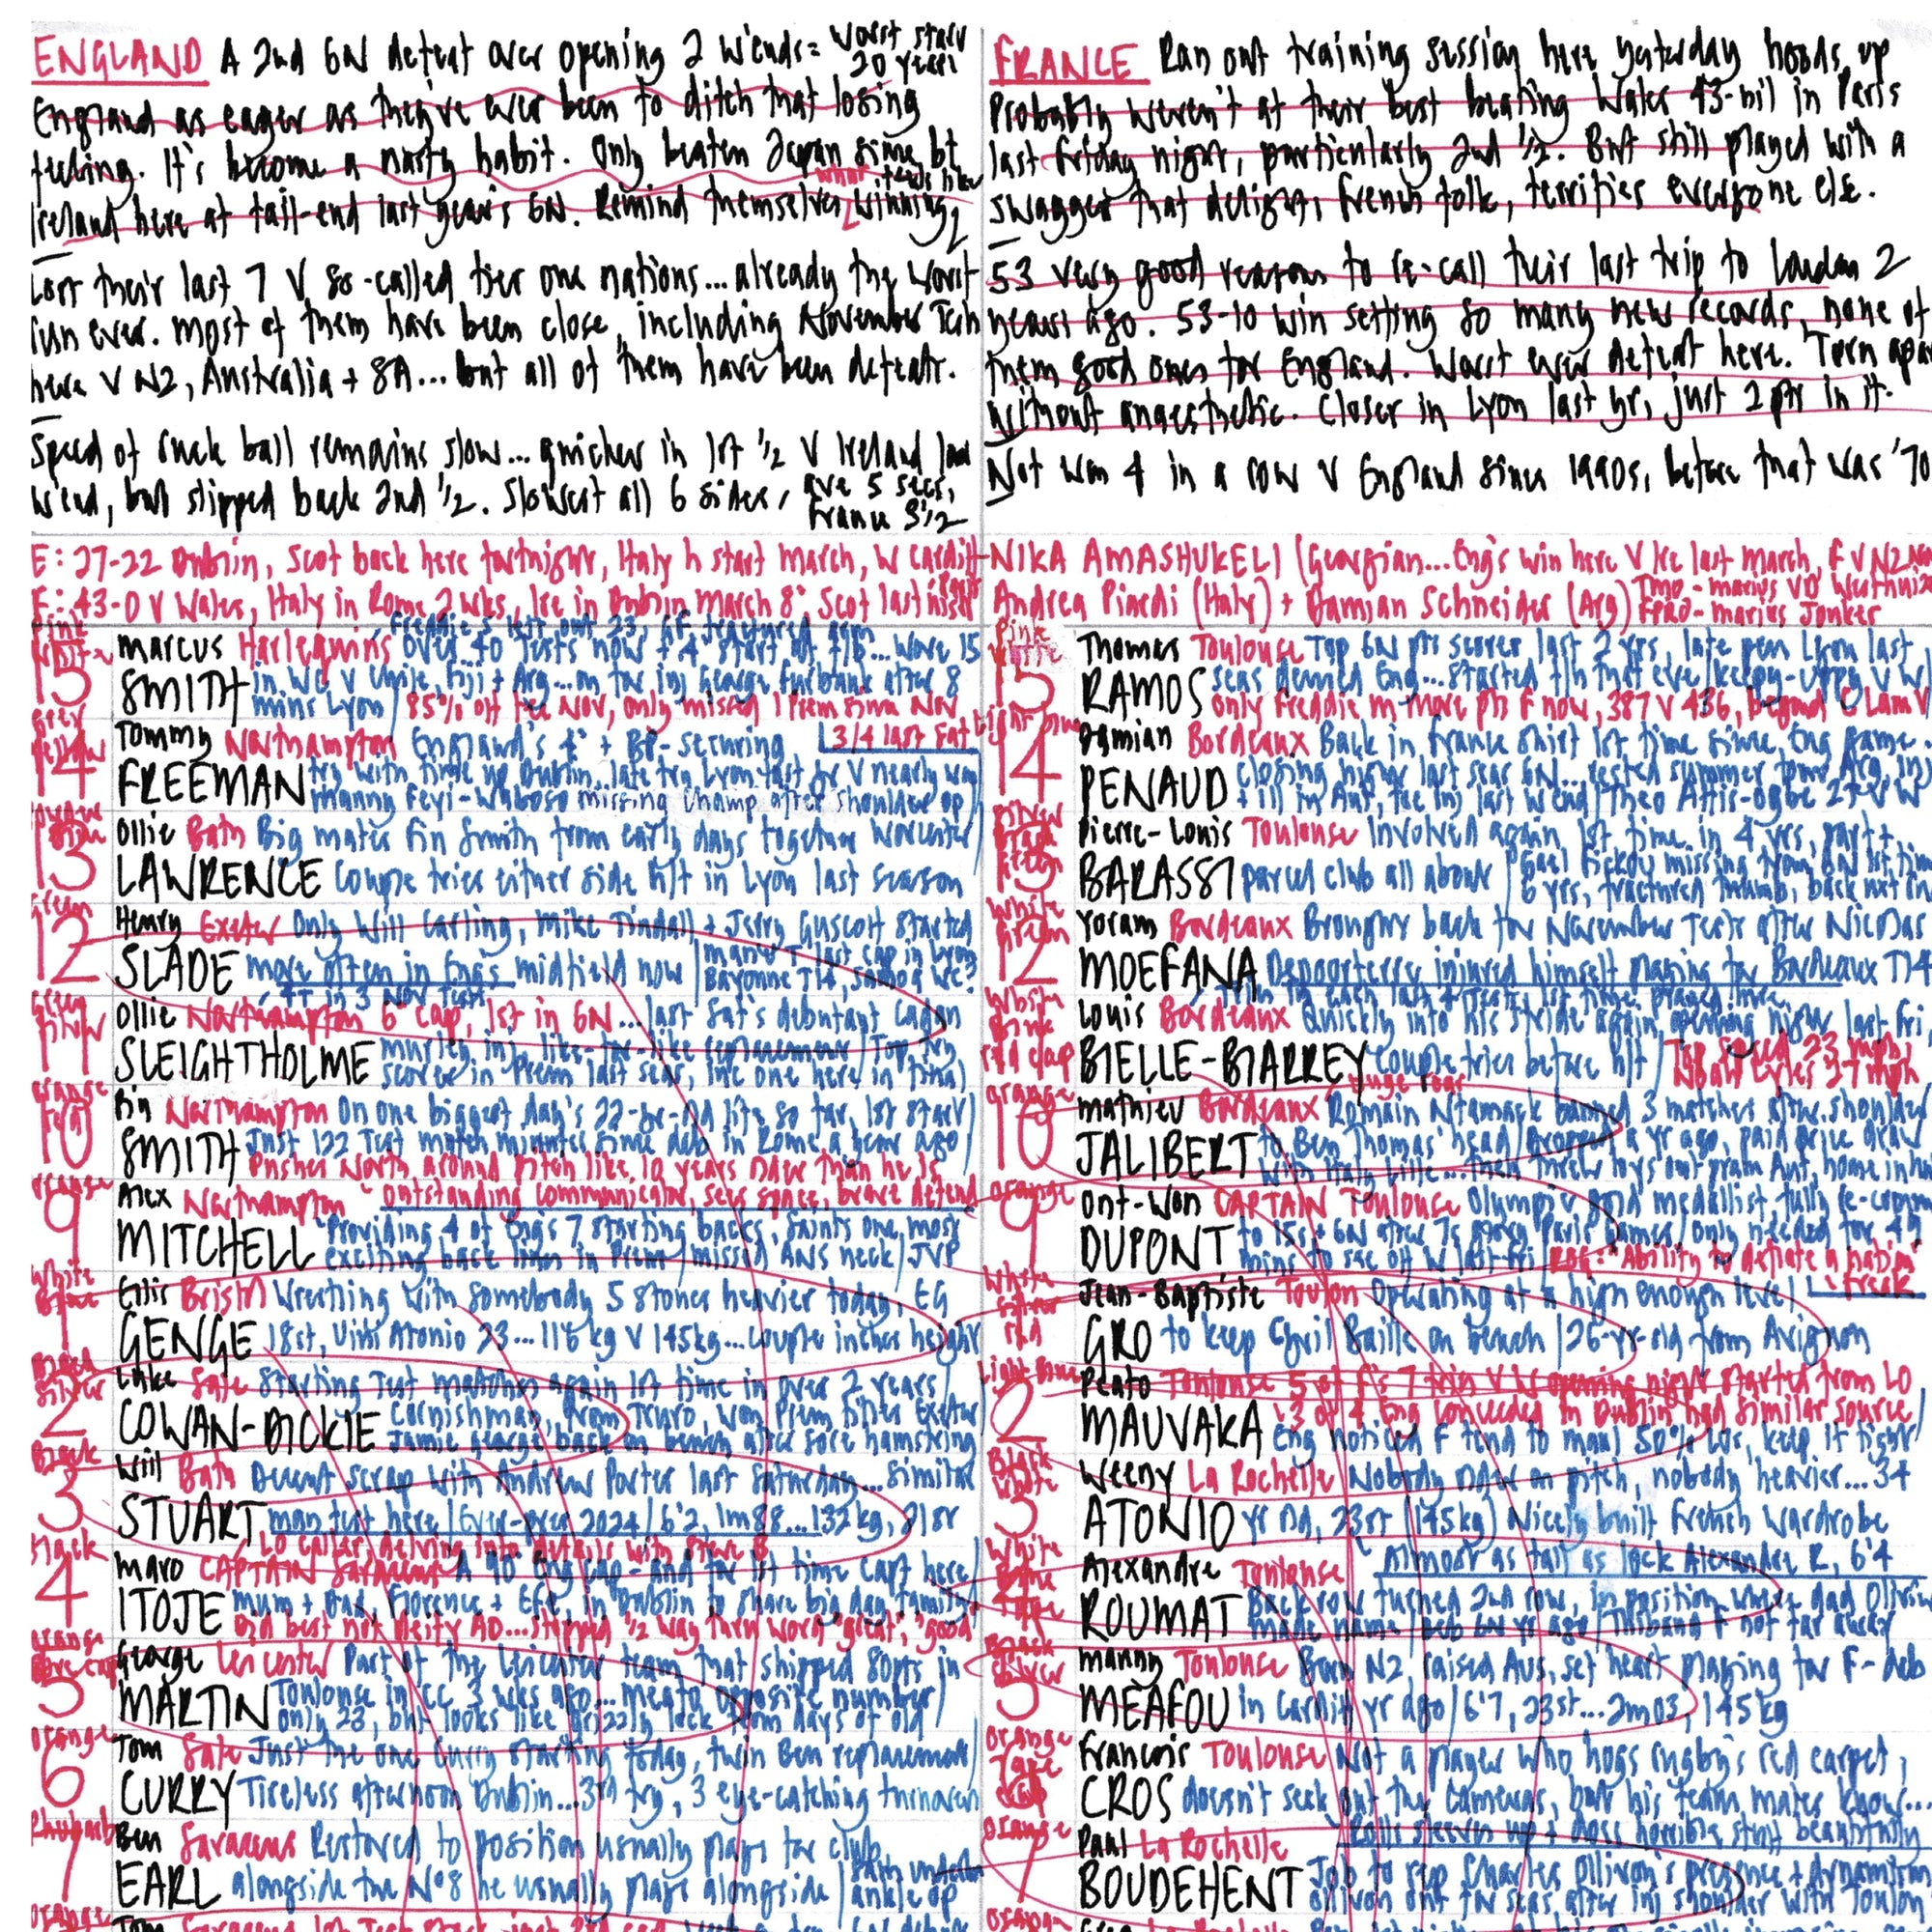 ENGLAND A 2nd 6N defeat over opening 2 w'ends = worst start
20 years
England as eager as they've ever been to ditch that losing
feeling. It's become a nasty habit. Only beaten Japan since bt
Ireland here at tail-end last year's 6N. Remind themselves what winning
Lost their last 7 V so-called tier one nations... already the worst
run ever. Most of them have been close, including November Tests
here V NZ, Australia + SA... but all of them have been defeats.
Speed of ruck ball remains slow... quicker in 1st 1/2 V Ireland last
w'end, but slipped back 2nd 1/2. Slowest all 6 sides, ave 5 secs,
France 3 1/2
FRANCE Ran out training session here yesterday hoods up
Probably weren't at their best beating Wales 43-nil in Paris
last Friday night, particularly 2nd 1/2. But still played with a
swagger that delights French folk, terrifies everyone else.
53 very good reasons to re-call their last trip to London 2
years ago. 53-10 win setting so many new records, none of
them good ones for England. Worst ever defeat here. Torn apart
without anaesthetic. Closer in Lyon last yr, just 2 pts in it.
Not won 4 in a row V England since 1990s, before that was '70
E: 27-22 Dublin, Scot back here fortnight, Italy h start March, W Cardiff
F: 43-0 V Wales, Italy in Rome 2 wks, Ire in Dublin March 8th Scot last
NIKA AMASHUKELI (Georgian... Eng's win here V Ire last March, F V NZ Nov
Andrea Piardi (Italy) + Damian Schneider (Arg) TMO - Marius VD Westhuizen
FPRO - Marius Jonker
15 Marcus Harlequins over 40 tests now + 4th start at FB... Wore 15
SMITH in WC V Chile, Fiji + Arg... on for inj George Furbank after 8
mins Lyon / 85% off tee Nov, only missed 1 Prem since Nov
14 Tommy Northampton England's 4th + BP-securing 3/4 last Sat
FREEMAN try with time up Dublin, late try Lyon last yr V nearly won
Manny Feyi-Waboso missing champ after shoulder op
13 Ollie Bath Big mates Fin Smith from early days together Worcester
LAWRENCE Couple tries either side h/t in Lyon last season
12 Henry Exeter Only Will Carling, Mike Tindall + Jerry Guscott started
SLADE more often in Eng's midfield now
11 Ollie Northampton 6th cap, 1st in 6N... last Sat's debutant Cadan
SLEIGHTHOLME Murley inj, like-for-like replacement / Top try
scorer in Prem last seas, inc one here in final
10 Fin Northampton On one biggest day's 22-yr-old life so far, 1st start
SMITH Just 122 Test match minutes since deb in Rome a year ago
Pushes North around pitch like 10 years older than he is
Outstanding communicator, sees space, brave defend
9 Alex Northampton
MITCHELL Providing 4 of Eng's 7 starting backs, Saints one most
exciting back lines in Prem / missed ANS neck / JVP
1 Ellis Bristol Wrestling with somebody 5 stones heavier today. EG
GENGE 18st, Uini Atonio 23... 118 kg V 145kg... couple inches height
2 Luke Sale Starting Test matches again 1st time in over 2 years
COWAN-DICKIE Cornishman, from Truro, won Prem titles Exeter
Jamie George back on bench after sore hamstring
3 Will Bath Decent scrap with Andrew Porter last Saturday... similar
STUART man test here / Ever-pres 2024 / 6'2, 1m88... 132kg, 21st
LO caller, delving into details with Steve B
4 Maro CAPTAIN Saracens A 90th Eng cap - and for 1st time capt here
ITOJE Mum + Dad, Florence + Efe, in Dublin to share big day family
Did best not deify AD... stopped 1/2 way thru word "great", "good"
5 George Leicester Part of the Leicester team that shipped 80pts in
MARTIN Toulouse in CC 3 wks ago... opposite number
only 23, but looks like grizzly lock from days of old
6 Tom Sale Just the one Curry starting today, twin Ben replacement
CURRY Tireless afternoon Dublin... 3rd try, 3 eye-catching turnovers
7 Ben Saracens Restored to position usually plays for club
EARL alongside the No8 he usually plays alongside
ankle op
15 Thomas Toulouse Top 6N pts scorer last 2 yrs, late pen Lyon last
RAMOS seas denied Eng... started f/h that eve / keepy-uppy V W
Only Freddie M more pts F now, 387 V 436, beyond C Lam
14 Damian Bordeaux Back in France shirt 1st time since Eng game
PENAUD closing night last seas 6N... rested summer tour Arg, inj
+ ill in Aut, toe inj last w'end / Theo Attis-ogbe
13 Pierre-Louis Toulouse Involved again 1st time in 4 yrs, part +
BARASSI parcel club all about / Gael Fickou missing from 6N 1st time
6 yrs, fractured thumb, back nxt
12 Yoram Bordeaux Brought back for November Tests after Nicolas
MOEFANA Depoortere injured himself playing for Bordeaux T14
11 Louis Bordeaux Quickly into his stride again, opening night last Fri
BIELLE-BIARREY couple tries before h/t / Top speed 23 mph
10 Mathieu Bordeaux Romain Ntamack banned 3 matches after shoulder
JALIBERT to Ben Thomas' head / Dropped a yr ago, paid price draw
with Italy Lille... then threw toys out pram Aut, home
9 Ont-Won CAPTAIN Toulouse Olympic gold medallist, fully re-
DUPONT to 15s + 6N after 7s glory Paris Games / Only needed for 49
mins to see off W last Fri "Ability to deflate a nation"
Freak
1 Jean-Baptiste Toulon Operating at a high enough level
GRO to keep Cyril Baille on bench / 26-yr-old from Avignon
2 Peato Toulouse 5 of F's 7 tries V W opening night started from LO
MAUVAKA 3 of 4 Eng conceded in Dublin had similar source
Eng noticed F tend to maul 50% LOs, keep it tight
3 Weeny La Rochelle Nobody older on pitch, nobody heavier... 34
ATONIO yr old, 23st (145kg) Nicely built French wardrobe
Almost as tall as lock Alexandre R, 6'4
4 Alexandre Toulouse
ROUMAT Back row turned 2nd row, in position where dad Olivier
made name / Deb 6N yr ago / Thibaud F not far away
5 Manny Toulouse Born NZ, raised Aus, set heart playing for F - deb
MEAFOU in Cardiff yr ago / 6'7, 23st... 2m03, 145kg
6 Francois Toulouse Not a player who hogs rugby's red carpet,
CROS doesn't seek out the cameras, but his team mates know...
Rolls sleeves up + does horrible stuff beautifully
7 Paul La Rochelle
BOUDEHENT Job to rep Charles Ollivon's presence + dynamism
Ollivon out for seas after inj shoulder with Toulon